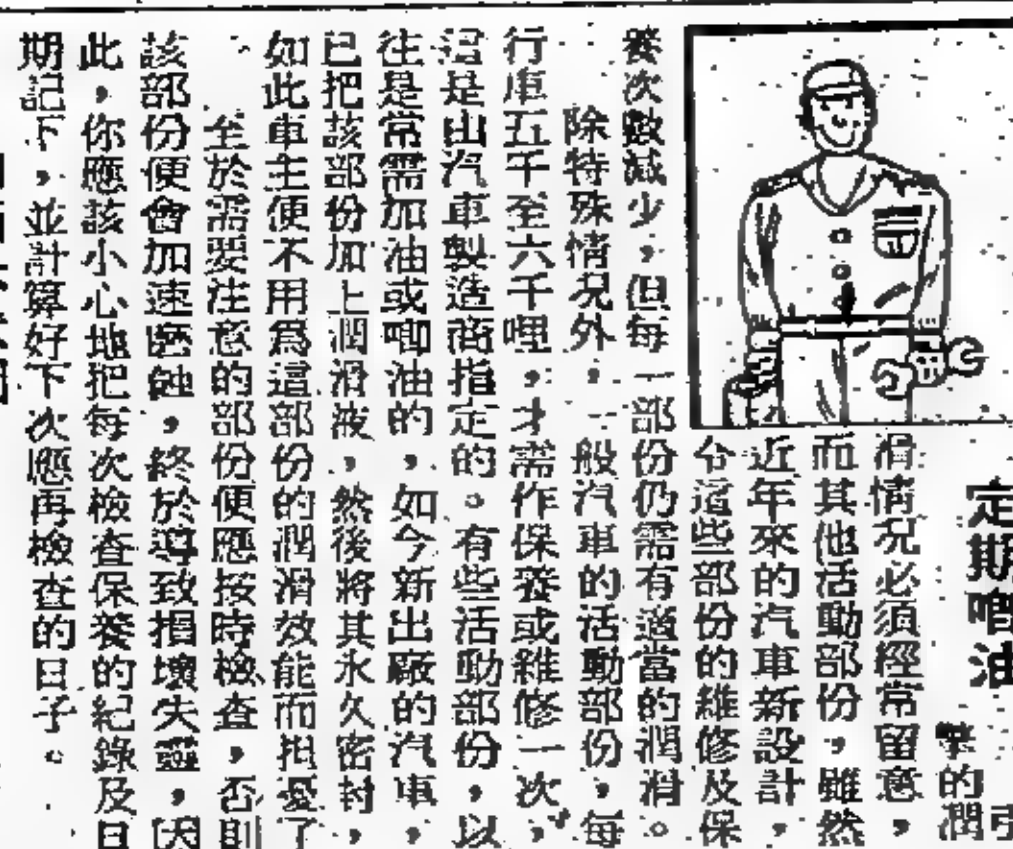 定期唧油
引
擎的潤
滑情况必須經常留意，
而其他活動部份，雖然
近年來的汽車新設計，
令這些部份的維修及保
養次數减少，但每一部份仍需有適當的潤滑。
除特殊情况外，一般汽車的活動部份，每
行車五千至六千哩，才需作保養或維修一次，
這是由汽車製造商指定的。有些活動部份，以
往是常需加油或唧油的，如今新出廠的汽車，
已把該部份加上潤滑液，然後將其永久密封，
如此車主便不用爲這部份的潤滑效能而担憂了
。
至於需要注意的部份便應按時檢查，否則
該部份便會加速磨蝕，終於導致損壞失靈，因
此，你應該小心地把每次檢查保養的紀錄及日
期記下，並計算好下次應再檢查的日子。